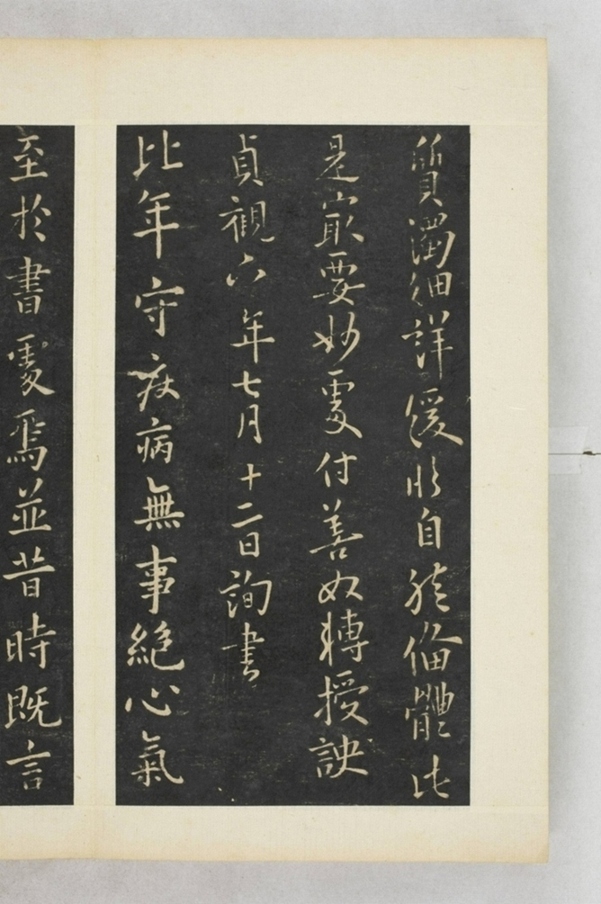 質濁細詳緩臨自然俻體此
是冣要妙處付善奴轉授訣
貞觀六年七月十二日詢書
比年守疾病無事絶心氣
至於書處焉並昔時既言